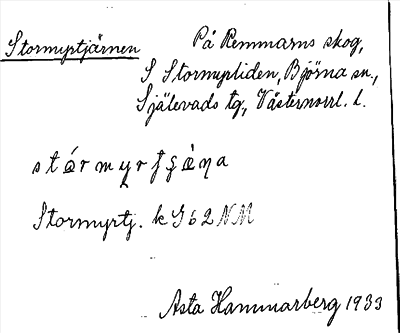 Stormyrtjärnen
På Remmarns skog,
S Stormyrliden, Björna sn,
Själevads tg, Västernorrl. l.
Stormyrtj. k G 62 NM
Asta Hammarberg 1933